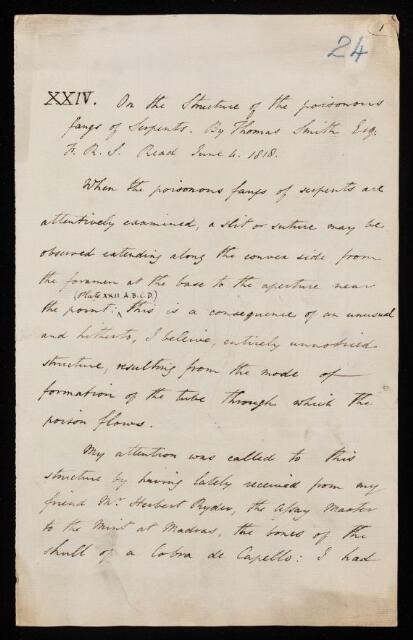 1
24
XXIV. On the Structure of the poisonous
fangs of Serpents. By Thomas Smith Esq.
F. R. S. Read June 4. 1818.
When the poisonous fangs of serpents are
attentively examined, a slit or suture may be
observed extending along the convex side from
the foramen at the base to the aperture near
(Plate XXII. A.B.C.D.)
the point: this is a consequence of an unusual
and hitherto, I believe, entirely unnoticed
structure, resulting from the mode of
formation of the tube through which the
poison flows.
My attention was called to this
structure by having lately received from my
friend Mr. Herbert Ryder, the Assay Master
to the Mint at Madras, the bones of the
skull of a Cobra de Capello: I had